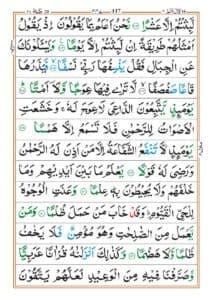 لَّبِثْتُمْ اِلَّا عَشْرًا ۝ نَحْنُ اَعْلَمُ بِمَا يَقُوْلُوْنَ اِذْ يَقُوْلُ
اَمْثَلُهُمْ طَرِيْقَةً اِنْ لَّبِثْتُمْ اِلَّا يَوْمًا ۝ وَيَسْـَٔلُوْنَكَ
عَنِ الْجِبَالِ فَقُلْ يَنْسِفُهَا رَبِّيْ نَسْفًا ۝ فَيَذَرُهَا
قَاعًا صَفْصَفًا ۝ لَّا تَرٰى فِيْهَا عِوَجًا وَّلَآ اَمْتًا ۝
يَوْمَئِذٍ يَّتَّبِعُوْنَ الدَّاعِيَ لَا عِوَجَ لَهٗ وَخَشَعَتِ
الْاَصْوَاتُ لِلرَّحْمٰنِ فَلَا تَسْمَعُ اِلَّا هَمْسًا ۝
يَوْمَئِذٍ لَّا تَنْفَعُ الشَّفَاعَةُ اِلَّا مَنْ اَذِنَ لَهُ الرَّحْمٰنُ
وَرَضِيَ لَهٗ قَوْلًا ۝ يَعْلَمُ مَا بَيْنَ اَيْدِيْهِمْ وَمَا
خَلْفَهُمْ وَلَا يُحِيْطُوْنَ بِهٖ عِلْمًا ۝ وَعَنَتِ الْوُجُوْهُ
لِلْحَيِّ الْقَيُّوْمِ وَقَدْ خَابَ مَنْ حَمَلَ ظُلْمًا ۝ وَمَنْ
يَّعْمَلْ مِنَ الصّٰلِحٰتِ وَهُوَ مُؤْمِنٌ فَلَا يَخٰفُ
ظُلْمًا وَّلَا هَضْمًا ۝ وَكَذٰلِكَ اَنْزَلْنٰهُ قُرْاٰنًا عَرَبِيًّا
وَّصَرَّفْنَا فِيْهِ مِنَ الْوَعِيْدِ لَعَلَّهُمْ يَتَّقُوْنَ